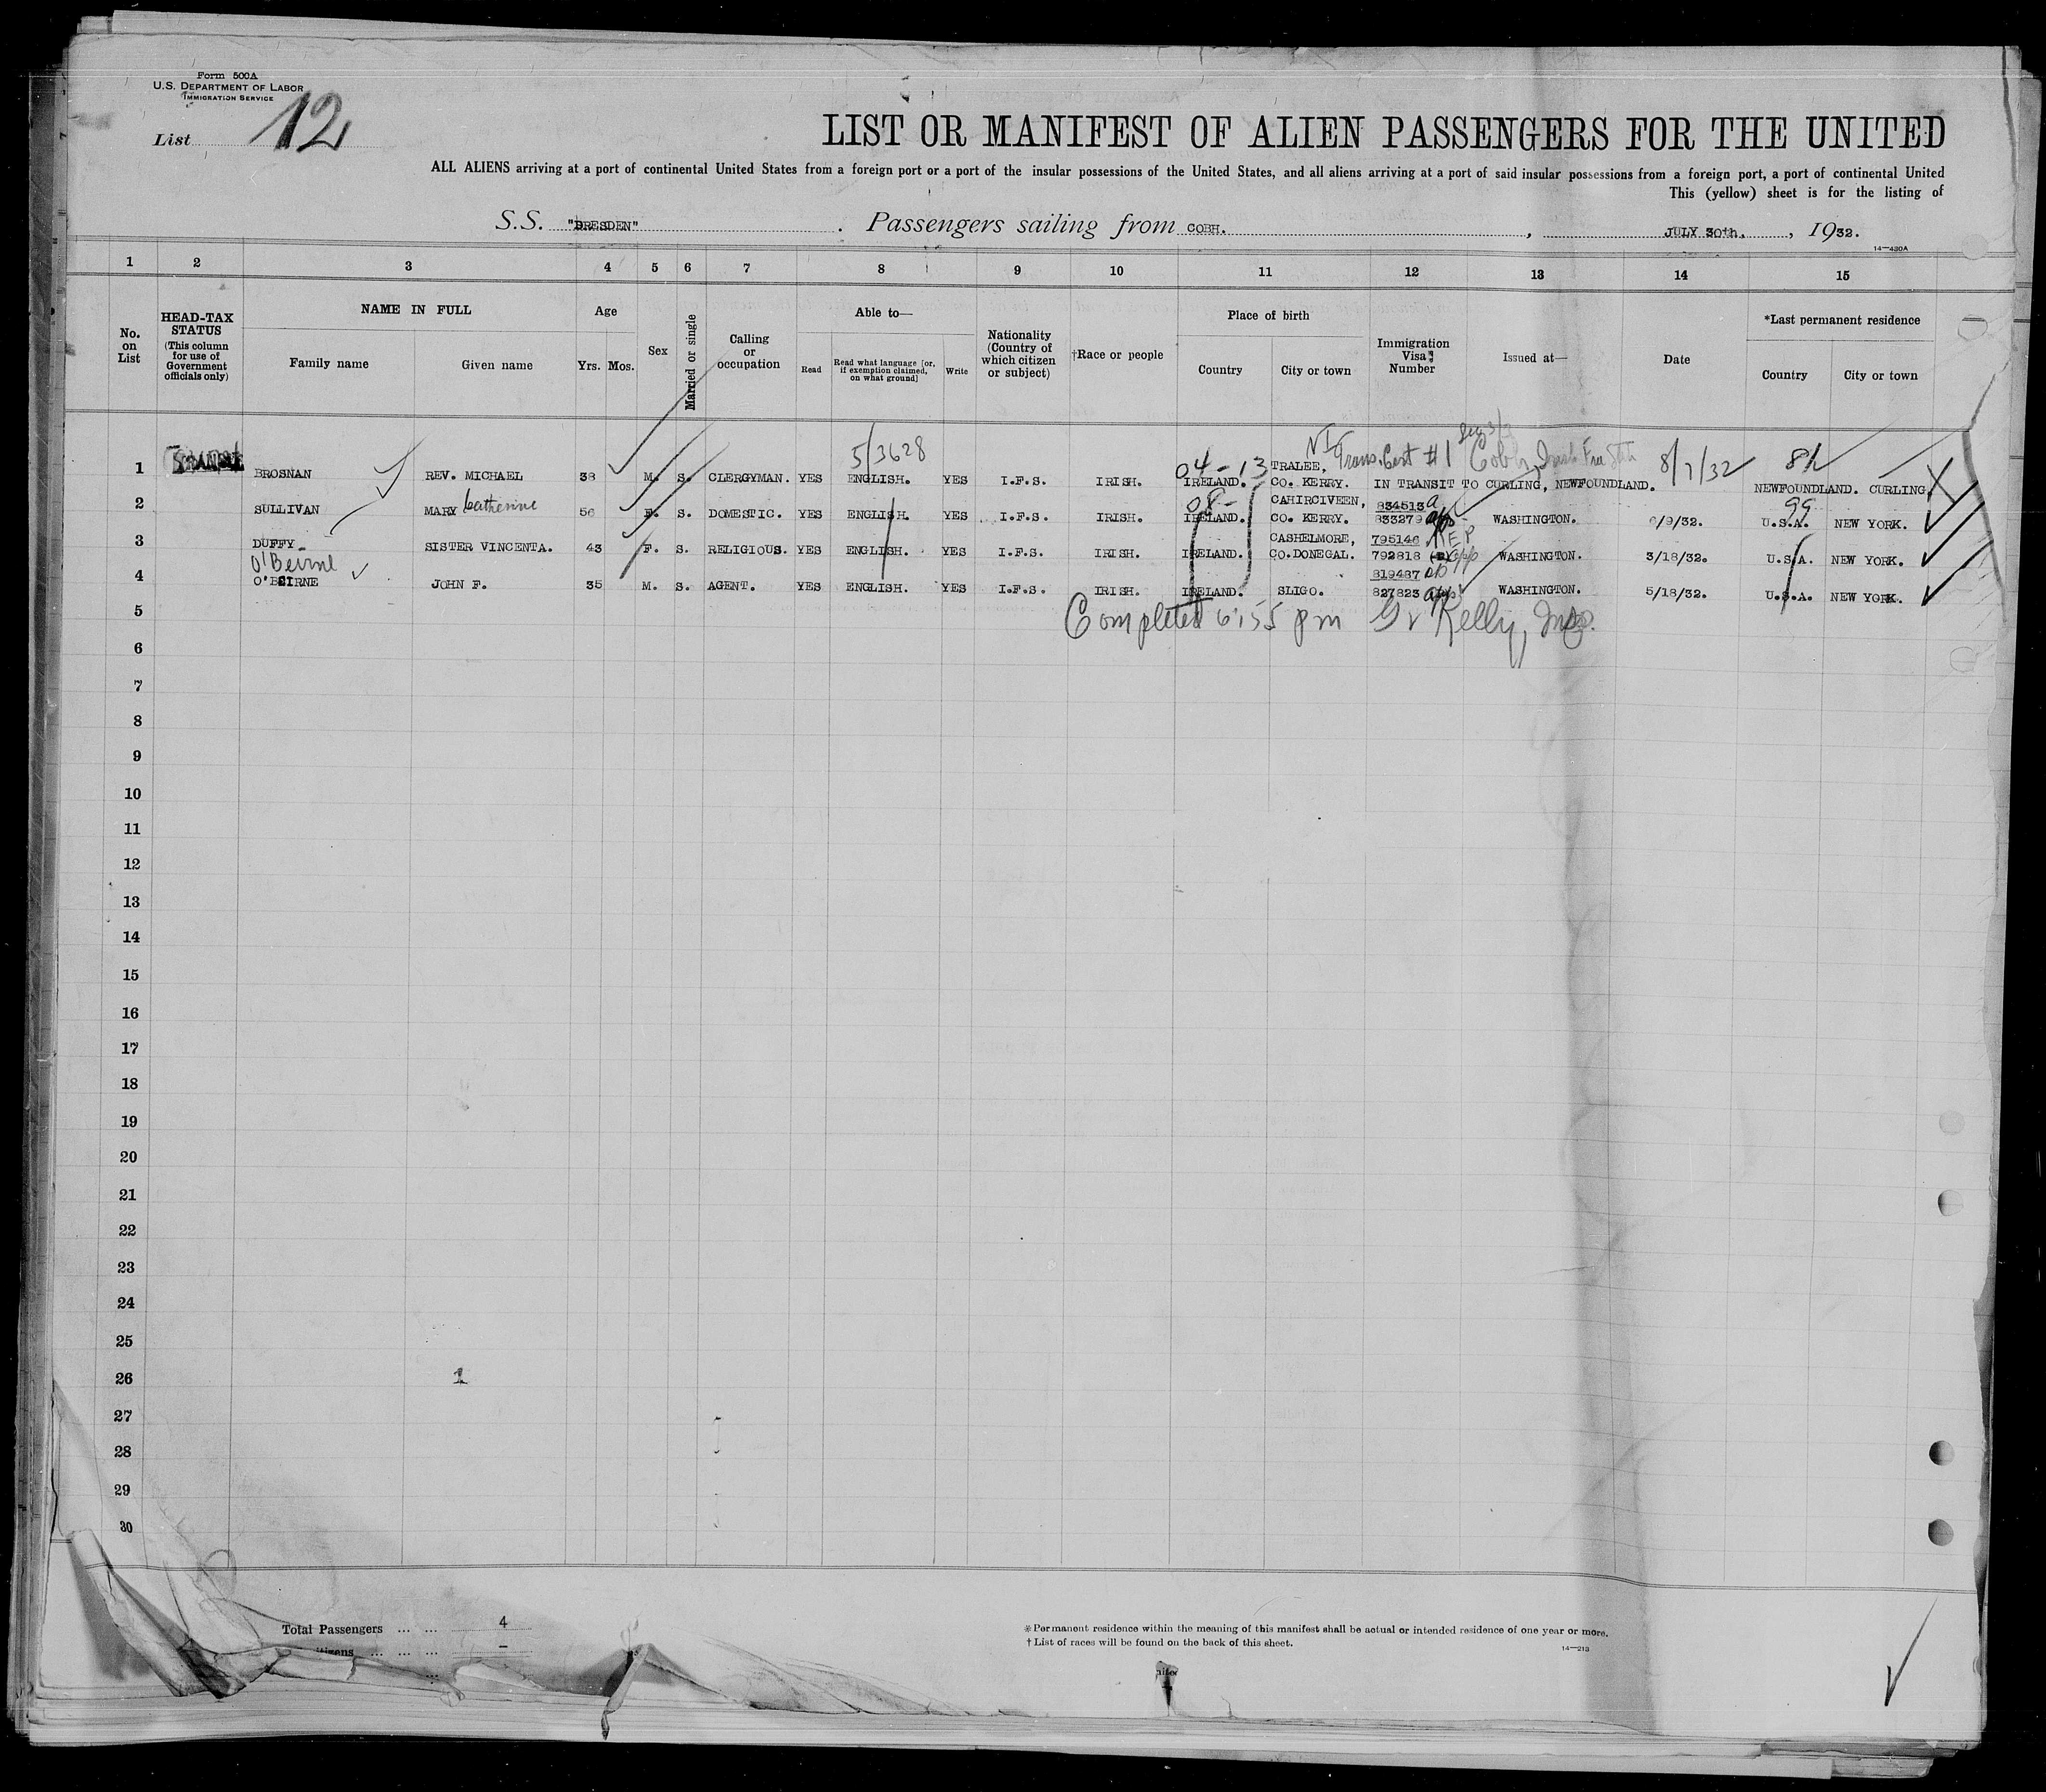 Form 500A
U.S. DEPARTMENT OF LABOR
IMMIGRATION SERVICE
List 12
LIST OR MANIFEST OF ALIEN PASSENGERS FOR THE UNITED
ALL ALIENS arriving at a port of continental United States from a foreign port or a part of the insular possessions of the United States, and all aliens arriving at a port of said insular possessions from a foreign port, a port of continental United
This (yellow) sheet is for the listing of
S.S. "DRESDEN" . Passengers sailing from COBH. , JULY 30th. , 1932.
14—430A
1 2 3 4 5 6 7 8 9 10 11 12 13 14 15
No. on List
HEAD-TAX STATUS (This column for use of Government officials only)
NAME IN FULL
Family name Given name
Age
Yrs. Mos.
Sex
Married or single
Calling or occupation
Able to—
Read
Read what language [or, if exemption claimed, on what ground]
Write
Nationality (Country of which citizen or subject)
†Race or people
Place of birth
Country City or town
Immigration Visa Number
Issued at—
Date
*Last permanent residence
Country City or town
5/3628
04-13 TRALEE, Trans. Cert #1 Cobh, Irish Free State 8/1/32
1 BROSNAN REV. MICHAEL 38 M. S. CLERGYMAN. YES ENGLISH. YES I.F.S. IRISH. IRELAND. CO. KERRY. IN TRANSIT TO CURLING, NEWFOUNDLAND. NEWFOUNDLAND. CURLING.
08- CAHIRCIVEEN, 834513 99
2 SULLIVAN MARY Catherine 56 F. S. DOMESTIC. YES ENGLISH. YES I.F.S. IRISH. IRELAND. CO. KERRY. 833279 app WASHINGTON. 6/9/32. U.S.A. NEW YORK.
CASHELMORE, 795146 REP
3 DUFFY SISTER VINCENTA. 43 F. S. RELIGIOUS. YES ENGLISH. YES I.F.S. IRISH. IRELAND. CO.DONEGAL. 792818 app WASHINGTON. 3/18/32. U.S.A. NEW YORK.
O'Beirne 819487
4 O'BEIRNE JOHN F. 35 M. S. AGENT. YES ENGLISH. YES I.F.S. IRISH. IRELAND. SLIGO. 827823 app WASHINGTON. 5/18/32. U.S.A. NEW YORK.
5 Completed 6:55 pm Kelly, Insp.
6
7
8
9
10
11
12
13
14
15
16
17
18
19
20
21
22
23
24
25
26 1
27
28
29
30
Total Passengers ... ... 4
* Permanent residence within the meaning of this manifest shall be actual or intended residence of one year or more.
† List of races will be found on the back of this sheet.
14—213